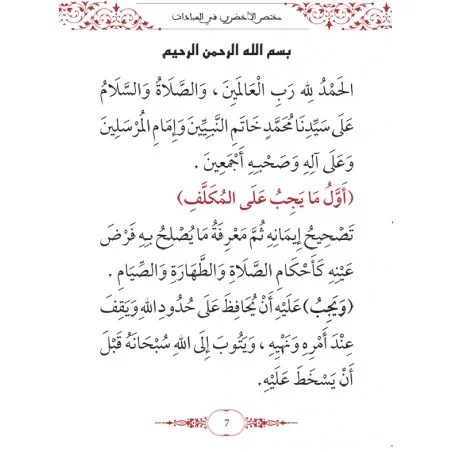 مختصر الأخضري في العبادات
بسم الله الرحمن الرحيم
الحَمْدُ لِلهِ رَبِّ الْعَالَمِينَ ، وَالصَّلَاةُ وَالسَّلَامُ
عَلَى سَيِّدِنَا مُحَمَّدٍ خَاتَمِ النَّبِيِّينَ وَإِمَامِ المُرْسَلِينَ
وَعَلَى آلِهِ وَصَحْبِهِ أَجْمَعِينَ .
(أَوَّلُ مَا يَجِبُ عَلَى المُكَلَّفِ)
تَصْحِيحُ إِيمَانِهِ ثُمَّ مَعْرِفَةُ مَا يُصْلِحُ بِهِ فَرْضَ
عَيْنِهِ كَأَحْكَامِ الصَّلَاةِ وَالطَّهَارَةِ وَالصِّيَامِ .
(وَيَجِبُ) عَلَيْهِ أَنْ يُحَافِظَ عَلَى حُدُودِ اللهِ وَيَقِفَ
عِنْدَ أَمْرِهِ وَنَهْيِهِ ، وَيَتُوبَ إِلَى اللهِ سُبْحَانَهُ قَبْلَ
أَنْ يَسْخَطَ عَلَيْهِ.
7